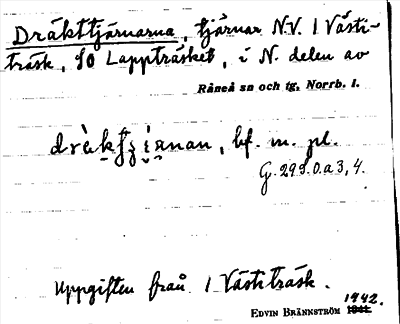 Dräkttjärnarna, tjärnar N.V. 1 Västi-
träsk, SO Lappträsket, i N. delen av
Råneå sn och tg, Norrb. l.
bf. m. pl.
G. 299.0.a 3, 4.
Uppgiften från 1 Västiträsk.
1942.
EDVIN BRÄNNSTRÖM 1941.